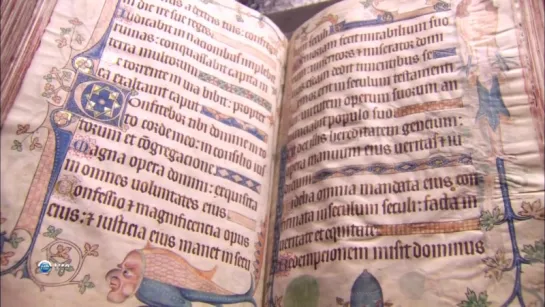 a dextris eius: confregit
in die ire sue reges
udicabit in nacionibus implebit
ruinas: conquassabit capita in
terra multorum
e torrente in via bibet: propter
ea exaltavit caput
Confitebor tibi domine in to
to corde meo: in consilio ius
torum et congregacione
Magna opera domini: exquisita
in omnes voluntates eius
Confessio et magnificencia opus
eius: et iusticia eius manet in secu
seculi
fecit mirabilium suo
misericors et miserator dom
escam dedit timentibus se
erit in seculum testamenti
utem operum suorum an
populo suo
det illis hereditatem gentium:
opera manuum eius veritas et iu
omnia mandata eius con
in seculum seculi: facta in
veritate et equitate
Redempcionem misit dominus